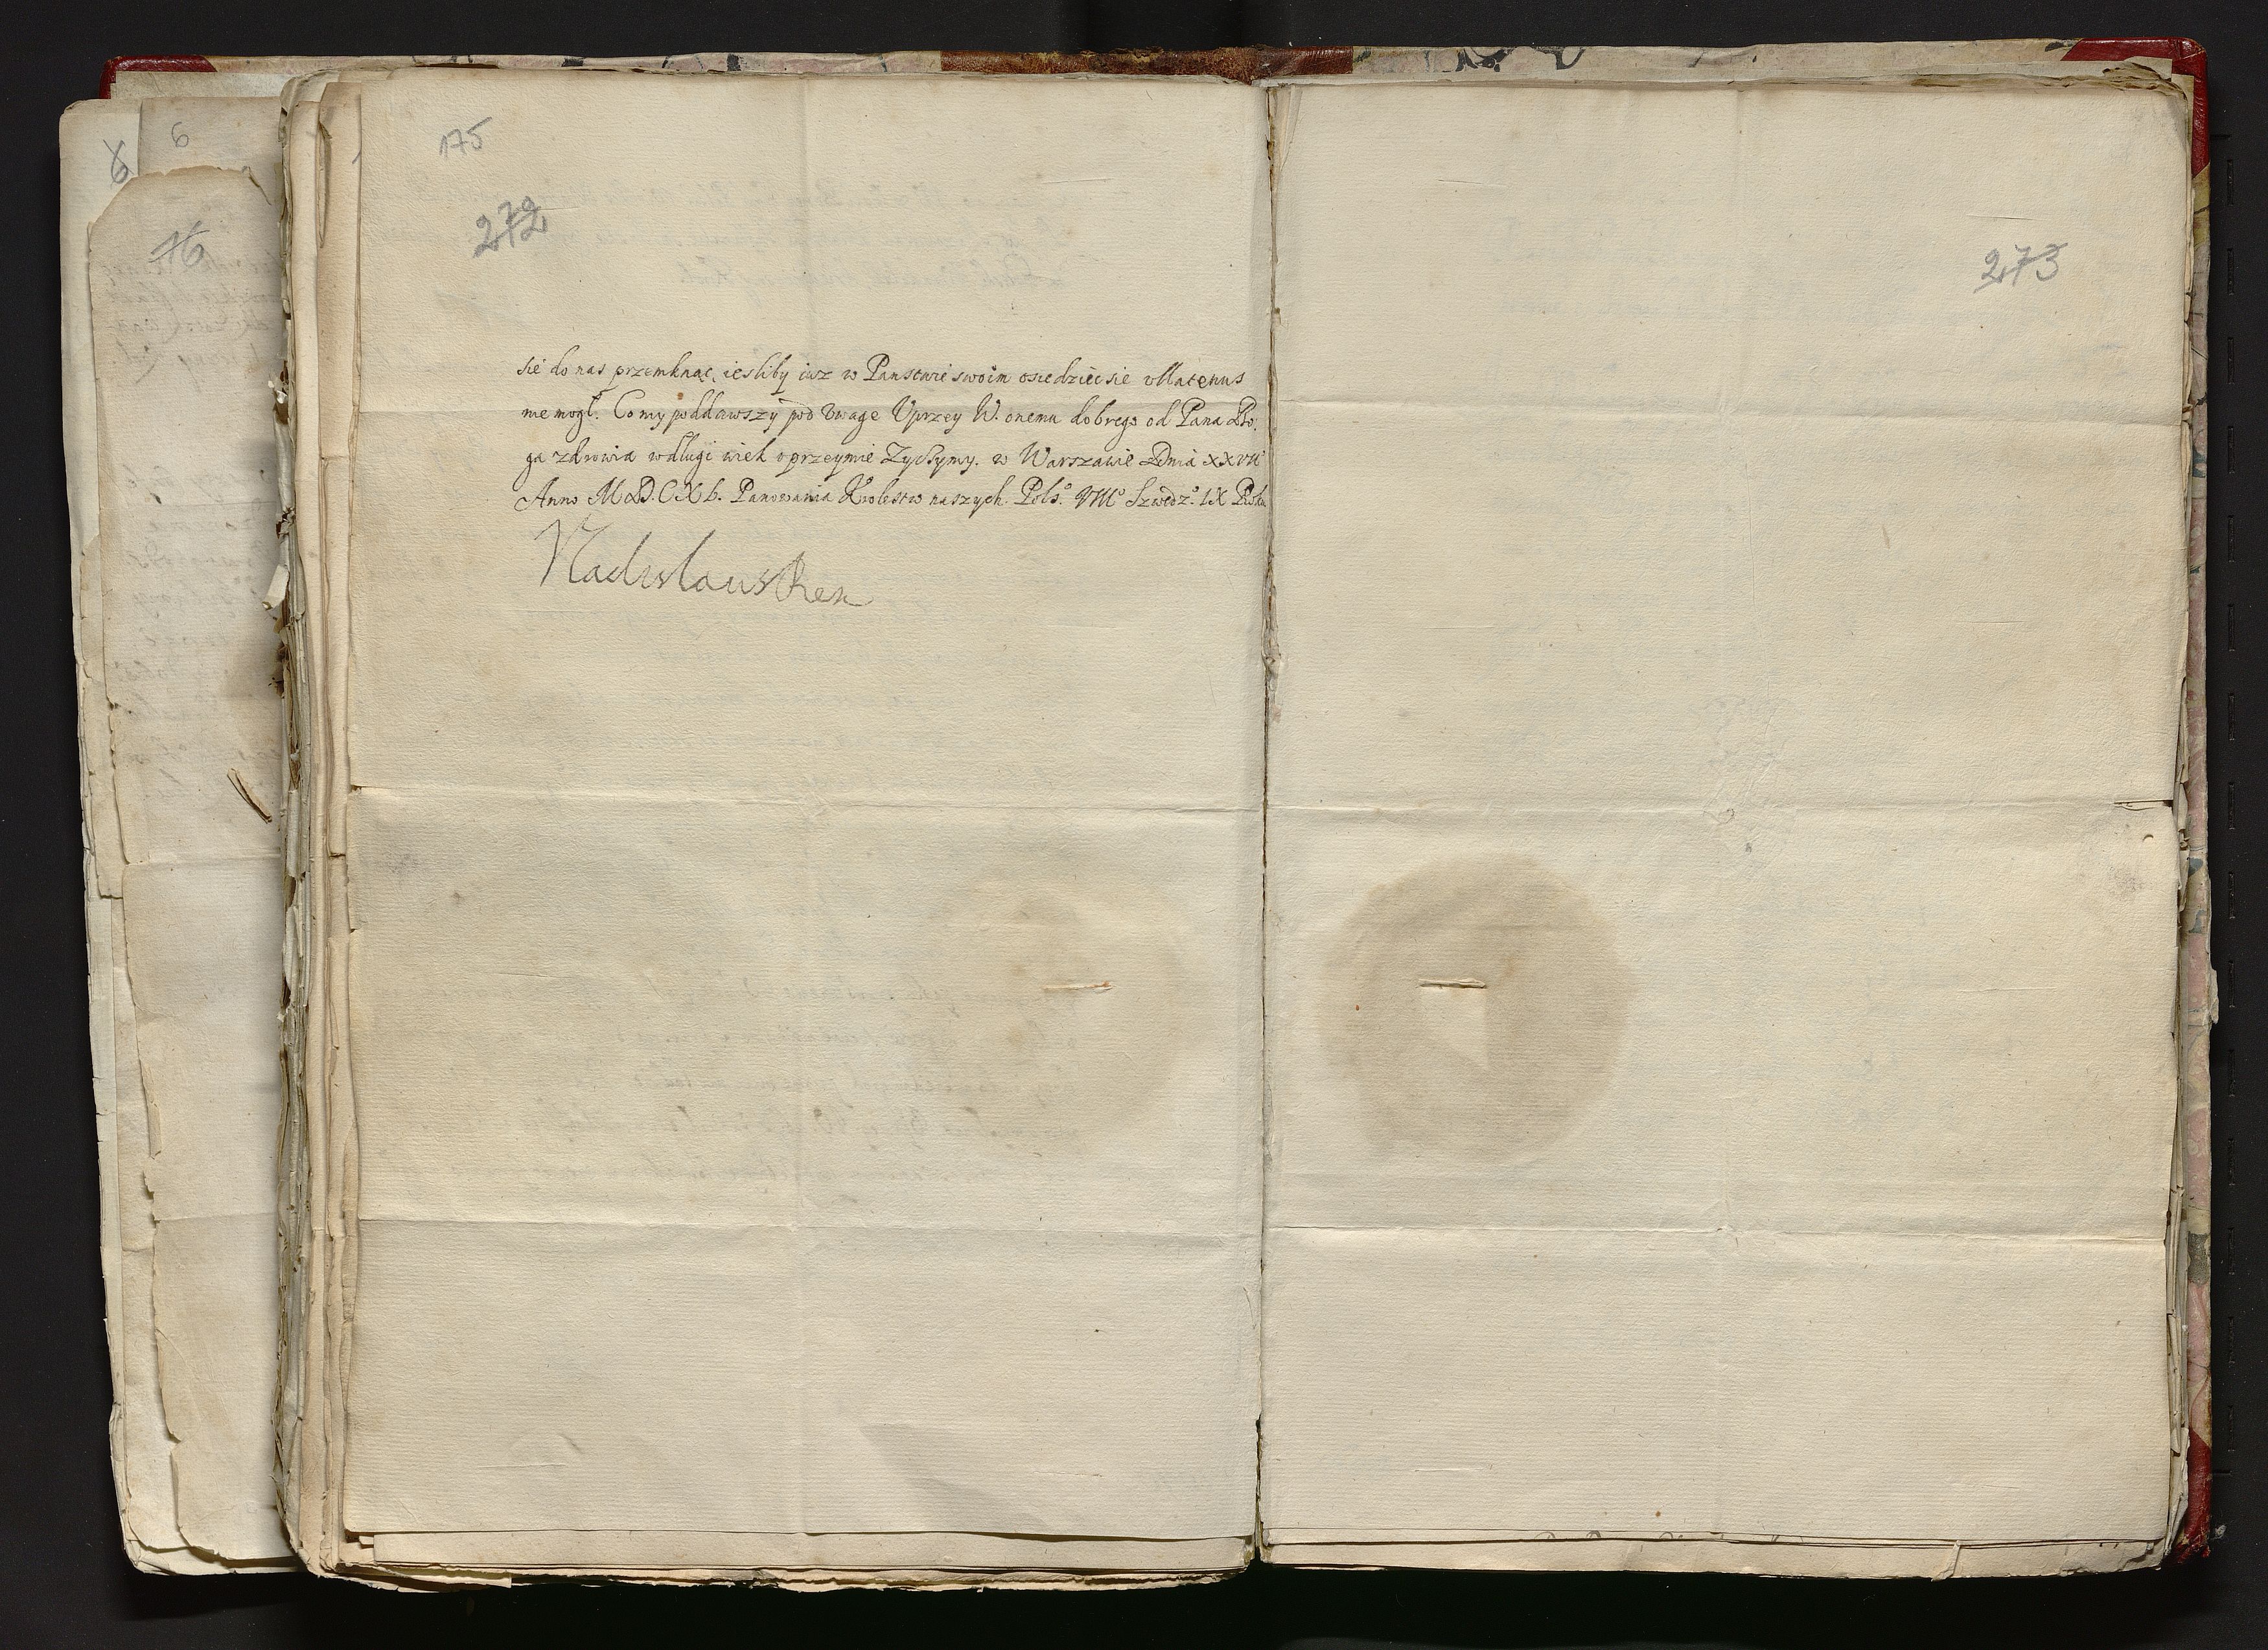 175
272
sie do nas przemknąć, iesliby iusz w Panstwie swoim osiedziec sie vllatenus
nie mogł. Co my poddawszy pod vwage Vprzey W. onemu dobrego od Pana Bo.
ga zdrowia w długi wiek vprzeymie Zyczymy. w Warszawie Dnia XXVII
Anno M.D.C.XL. Panowania Krolestw naszych Pols.º VIIIº Szwedz.º IX Roku
Vladislaus Rex
273
6
6
76